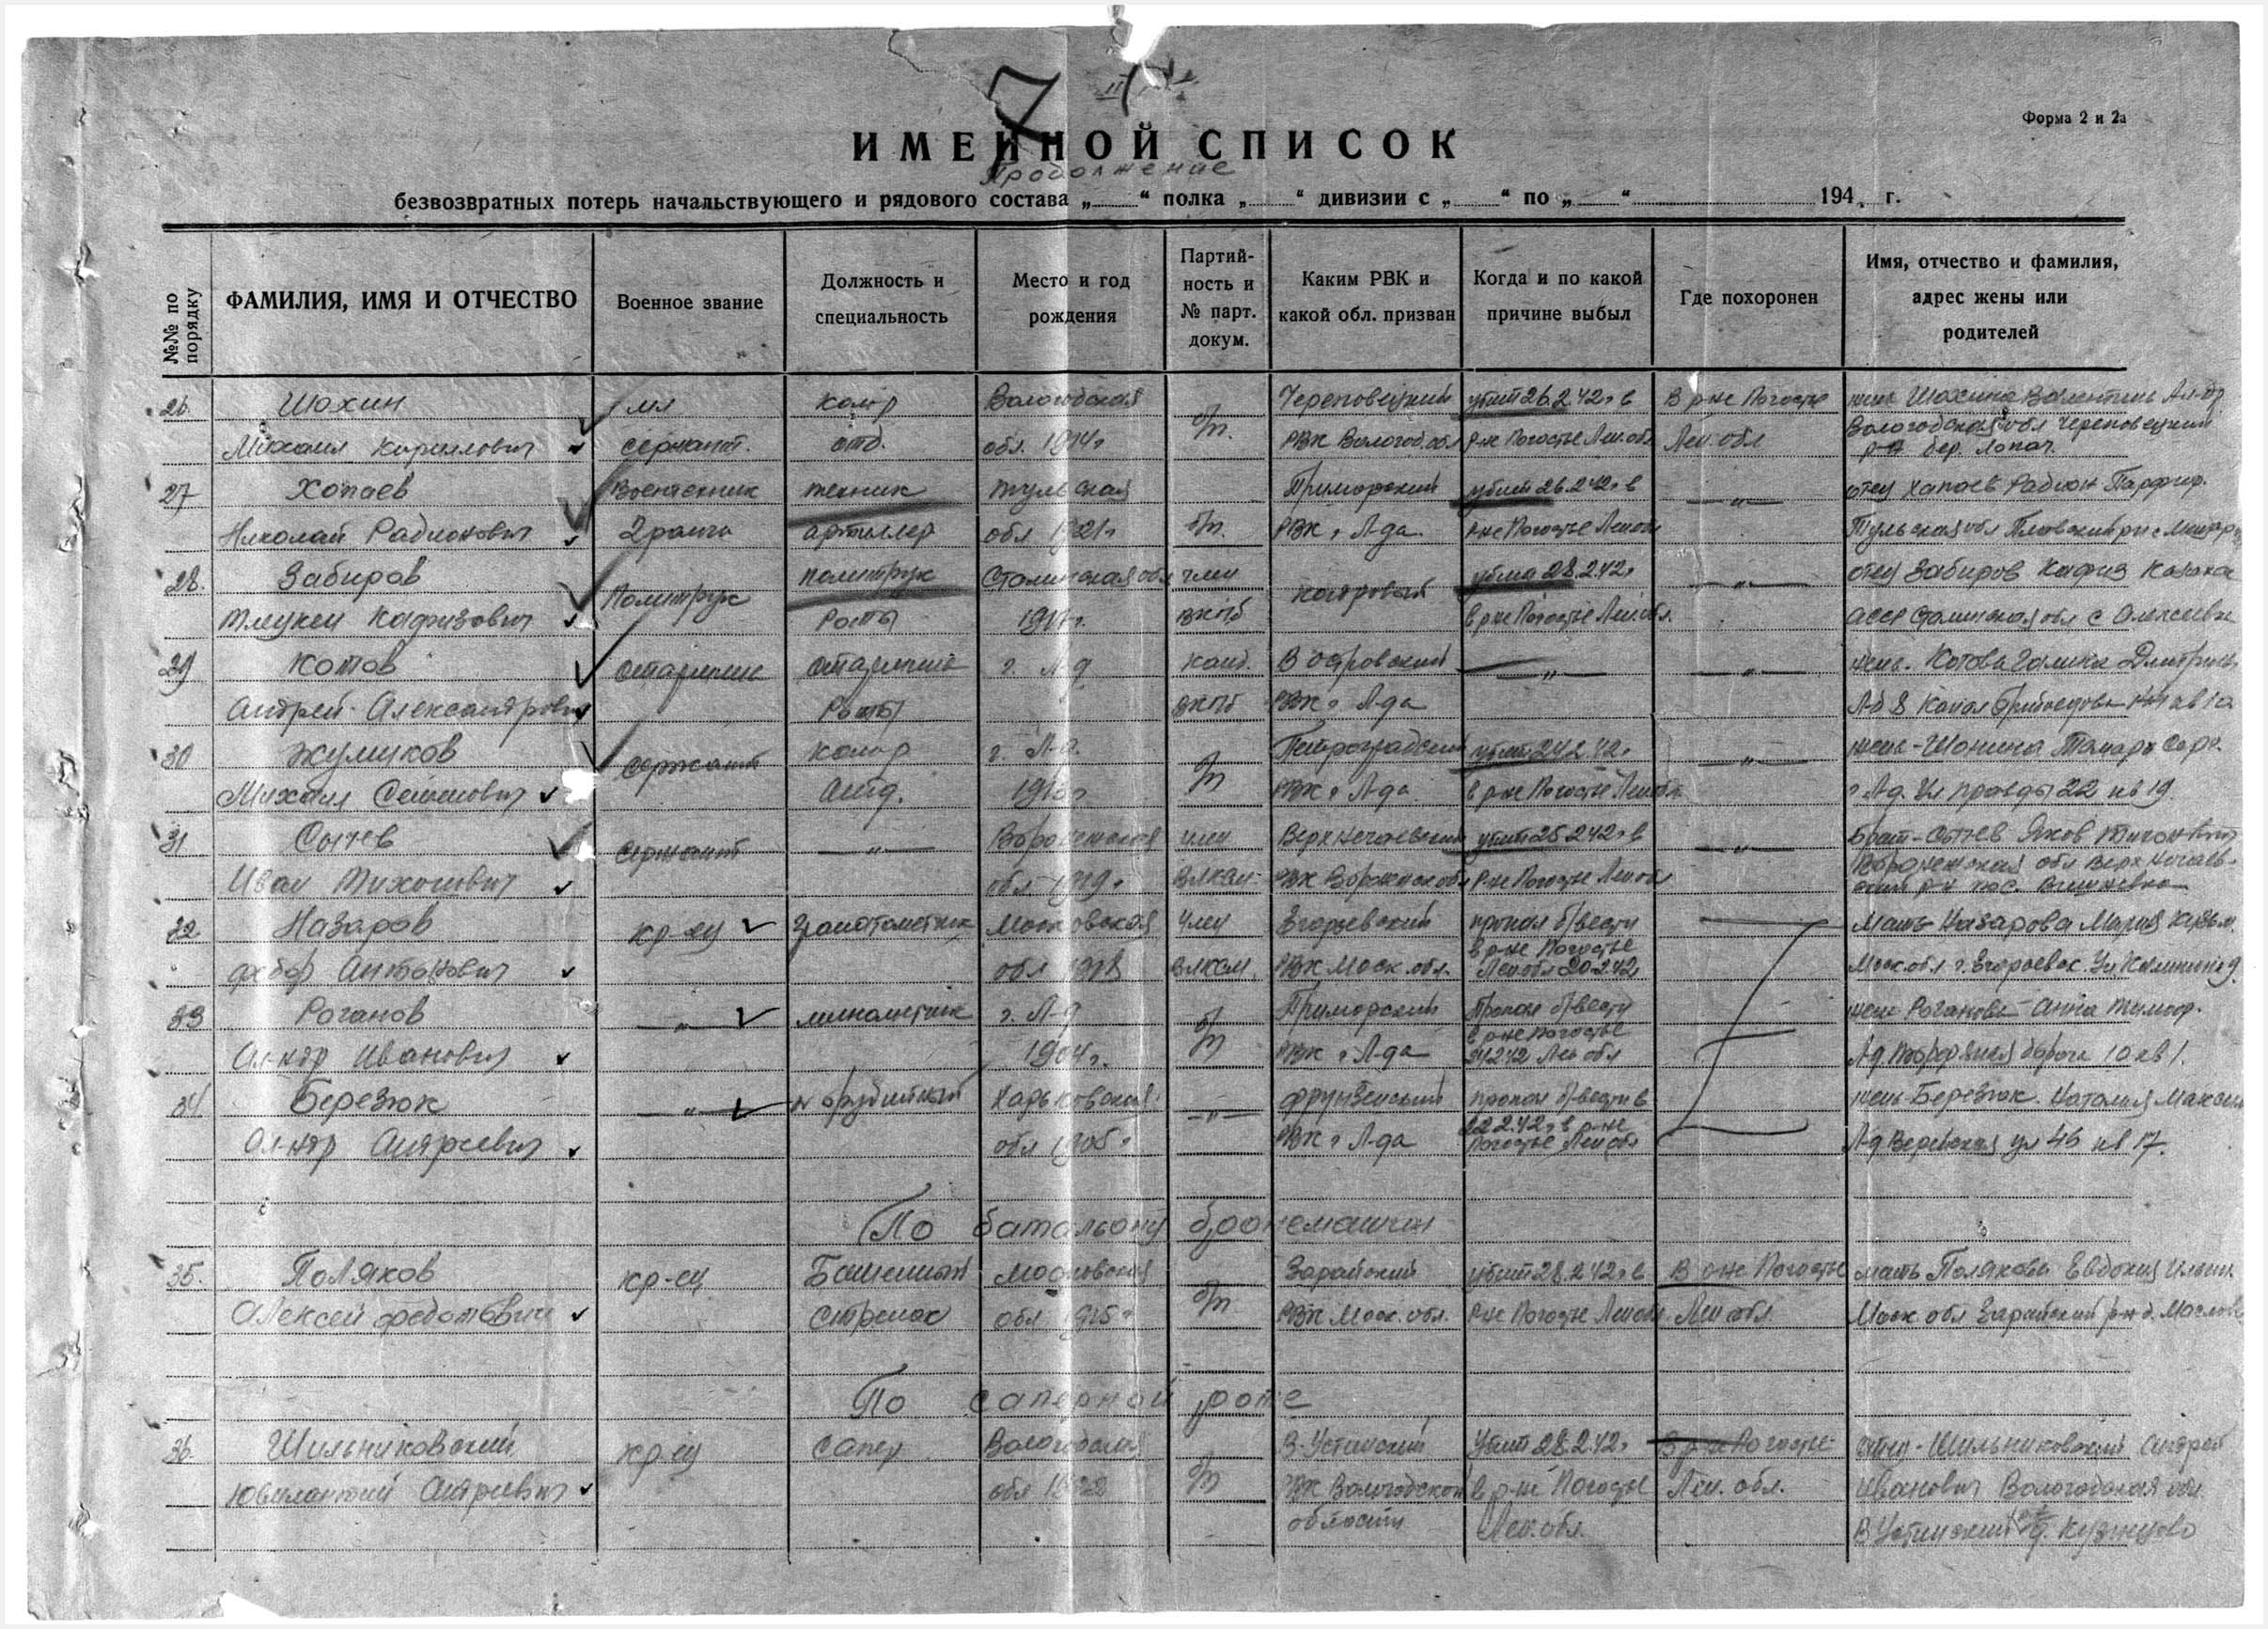 7
Форма 2 и 2а
ИМЕННОЙ СПИСОК
Продолжение
безвозвратных потерь начальствующего и рядового состава „ “ полка „ “ дивизии с „ “ по „ “ 194 г.
№№ по порядку
ФАМИЛИЯ, ИМЯ И ОТЧЕСТВО
Военное звание
Должность и специальность
Место и год рождения
Партийность и № парт. докум.
Каким РВК и какой обл. призван
Когда и по какой причине выбыл
Где похоронен
Имя, отчество и фамилия, адрес жены или родителей
26. Шохин мл ком-р Вологодская б/п. Череповецкий убит 26.2.42г в В р-не Погостье жена Шохина Валентина Ал-др
Михаил Кириллович сержант. отд. обл. 1914г РВК Вологод. обл р-не Погостье Лен. обл Лен. обл Вологодская обл Череповецкий
р-н дер. Лопач.
27 Хопаев Воентехник техник Тульская Приморский убит 26.2.42г в —"— отец Хапаев Радион Парфир.
Николай Радионович 2 ранга артиллер обл 1921г б/п. РВК г Л-да р-не Погостье Лен обл Тульская обл
28. Забиров Политрук политрук Сталинская обл член кадровый убит 28.2.42г —"— отец Забиров Кафиз
Кафизович Роты 1917г. ВКПб в р-не Погостье Лен. обл. АССР Сталинская обл с
29 Котов старшина старшина г. Л-д канд. В островский —"— —"— жена. Котова Галина Дмитриев.
Андрей Александрович Роты ВКПб РВК г Л-да Л-д 8 Канал Грибоедова кв 10
30 Жумиков сержант ком-р г. Л-д. б/п Петроградский убит 24.2.42г —"— жена - Шонина Тамара Серг.
Михаил Семенович отд. РВК г Л-да в р-не Погостье Лен обл г Л-д. Ул правды 22 кв 19
31 Сычев сержант —"— Воронежская член Верхнечаевский убит 25.2.42г в —"— Брат - Сычев Яков Тихонович
Иван Тихонович обл 1919г ВЛКСМ РВК Воронежск обл р-не Погостье Лен обл Воронежская обл
32 Назаров кр-ец Московская член Егорьевский пропал б/вести Мать Назарова Мария Кузьм.
Федор Антонович обл 1918 ВЛКСМ РВК Моск. обл. в р-не Погостье Лен обл 20.2.42г Моск. обл г. Егорьевск. Ул Калинина 9
33 Роганов —"— минометчик г. Л-д б/п Приморский Пропал б/вести жена Роганова Анна Тимоф.
Ал-ндр Иванович 1904г. РВК г Л-да в р-не Погостье 24.2.42 Лен обл Л-д. дорога 10 кв 1.
34 Березюк —"— орудийный Харьковская —"— Фрунзенский пропал б/вести в жена Березюк. Наталия Максим
Ал-ндр Андреевич обл 1905г РВК г Л-да 22.2.42г в р-не Погостье Лен обл Л-д Верейская ул 46 кв 17.
По батальону бронемашин
35. Поляков кр-ец Башенный Московская б/п Зарайский убит 28.2.42г в В р-не Погостье мать Полякова Евдокия Ильин.
Алексей Федотович стрелок обл 1915г РВК Моск. обл. р-не Погостье Лен обл. Лен обл. Моск. обл Зарайский р-н д. Маслово
По саперной роте
36. Шильниковский кр-ец Сапер Вологодская б/п В-Устюгский Убит 28.2.42г В р-не Погостье отец - Шильниковский Андрей
Ювеналий Андреевич обл 1922 РВК Вологодской в р-не Погостье Лен. обл. Иванович Вологодская обл.
области Лен. обл. В Устюгский д. Кузнецово